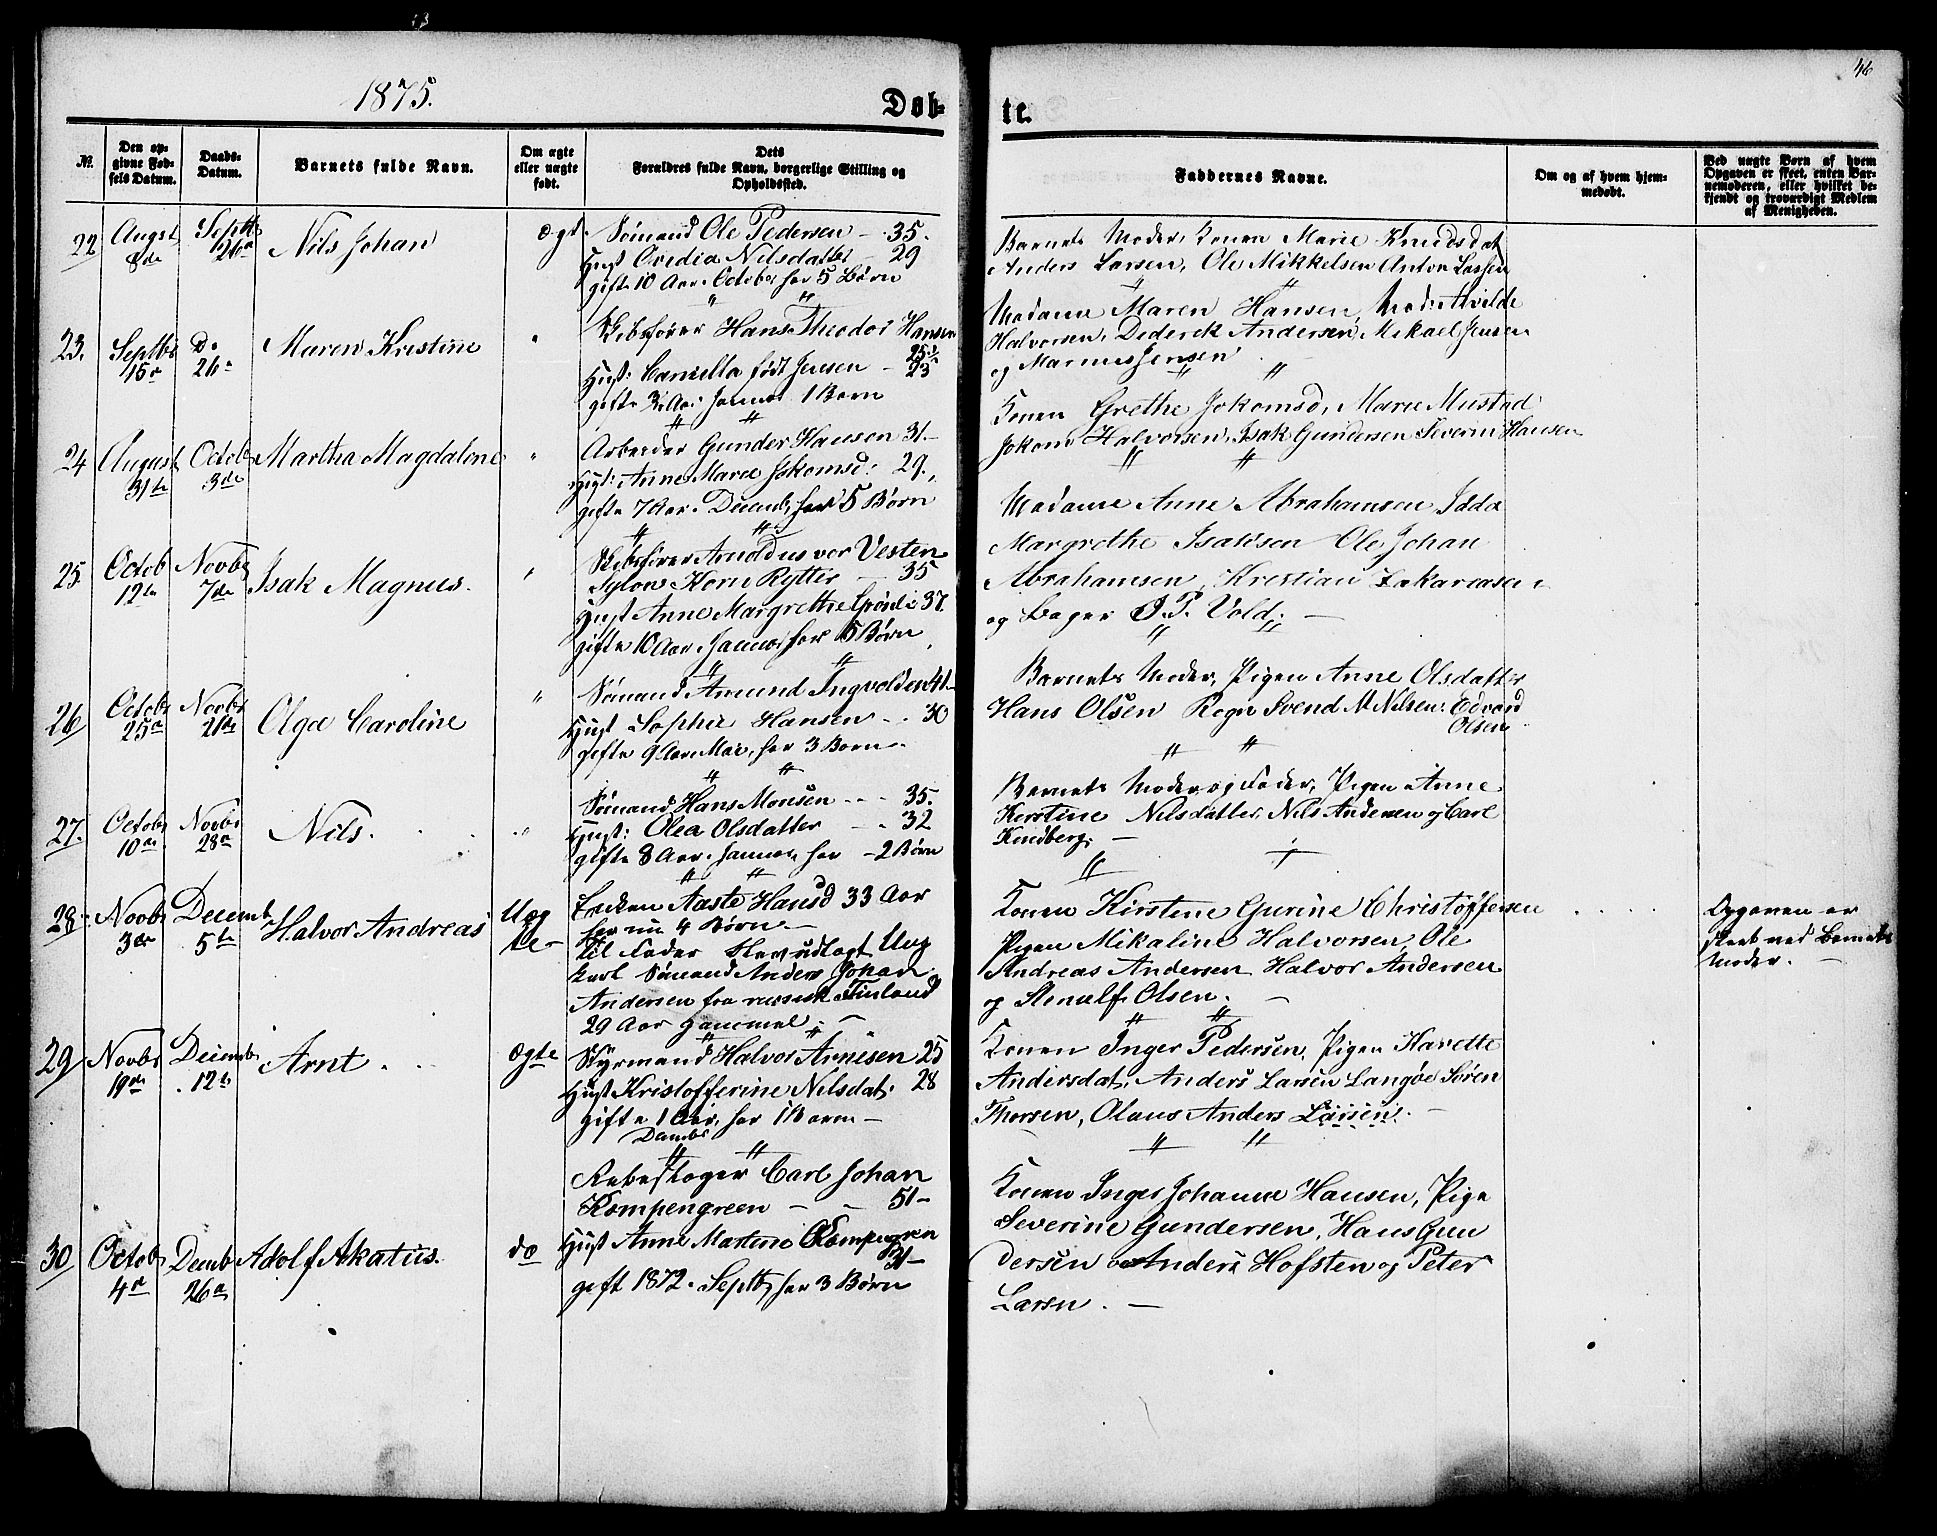 1875.
46
Døb-
te.
№.
Den op-
givne Fød-
sels Datum.
Daabs-
Datum.
Barnets fulde Navn.
Om ægte
eller uægte
født.
Dets
Forældres fulde Navn, borgerlige Stilling og
Opholdssted.
Faddernes Navne.
Om og af hvem hjem-
medøbt.
Ved uægte Børn af hvem
Opgaven er skeet, enten Bar-
nemoderen, eller hvilket be-
kjendt og troværdigt Medlem
af Menigheden.
22
Augst
8de
Septb
26de
Nils Johan
Ægt.
Sømand Ole Pedersen - 35.
Hust Ovedia Nilsdatter 29
gifte 10 Aar. October har 5 Børn
Barnets Moder, Konen Marie Knudsdat
Anders Larsen, Ole Mikkelsen Anton Larsen
23.
Septb
15de
Do
26de
Maren Kristine
"
Skibsfører Hans Theodor Hansen
25½
Hust: Camilla født Jensen - 23
gifte Aar Januar 1 Barn
Madame Maren Hansen, Mad: Alvilde
Halvorsen, Dederek Andersen, Mikael Jensen
og Marius Jensen
24
August
31te
Octob
3de
Martha Magdalene
"
Arbeider Gunder Hansen 31.-
Hust: Anne Marie Jokomsd: 29.
gifte 7 Aar. Decemb, har 5 Børn
Konen Grethe Jokomsd, Marie Mustad
Jokom Halvorsen, Isak Gundersen Severin Hansen
25.
Octob
12te
Novbr
7de
Isak Magnus.
"
Skibsfører Arnoldus von Vesten
Sylow Korn Rytter - 35
Hust Anne Margrethe 37.
gifte 10 Aar Januar, har 5 Børn
Madame Anne Abrahamsen Idda
Margrethe Isaksen Ole Johan
Abrahamsen, Kristian Zakariasen
og Bager O. P. Vold. -
26
Octobr
25de
Novbr
21de
Olga Caroline
"
Sømand Amund Ingvoldsen 41-
Hust Sophie Hansen - 30
gifte 9 Aar Mai, har 3 Børn.
Barnets Moder, Pigen Anne Olsdatter
Hans Olsen Svend M Nilsen. Edvard
Olsen
27.
Octobr
10de
Novbr
28de
Nils.
"
Sømand Hans Monsen - - 35.
Hust: Olea Olsdatter - 32
gifte 8 Aar. Januar, har - 2 Børn
Barnets Moder og Fader, Pigen Anne
Kirstine Nilsdatter, Nils Andersen og Carl
Kindberg. -
28
Novbr
3de
Decemb
5te
Halvor Andreas
Uæg
te-
Enken Aaste Hansd 33 Aar
har nu 4 Børn -
Til Fader blev udlagt Ung
karl Sømand Anders Johan
Andersen fra russisk Finland
29 Aar gammel. -
Konen Kirstine Gurine Christoffersen
Pigen Mikaline Halvorsen, Ole
Andreas Andersen Halvor Andersen
og Stenulf Olsen. -
Opgaven er
skeet ved Barnets
Moder. -
29
Novbr
19de
Decemb
12te
Arnt
Ægte
Styrmand Halvor Arnesen 25
Hust Kristofferine Nilsdat. 28
gifte 1 Aar, har 1 Barn -
Decembr
Konen Inger Pedersen, Pigen Havette
Andersdat, Anders Larsen Langøe Søren
Thorsen, Olaus Anders Larsen. -
30
Octob
4de
Decmb
26de
Adolf Akatius.
do
Rebeslager Carl Johan
Kompengreen - - 51-
Hust Anne Martine Kompengren
31-
gift 1872. Septb, har 3 Børn
Konen Inger Johanne Hansen, Pige
Severine Gundersen, Hans Gun
dersen Anders Hofsten og Peter
Larsn. -